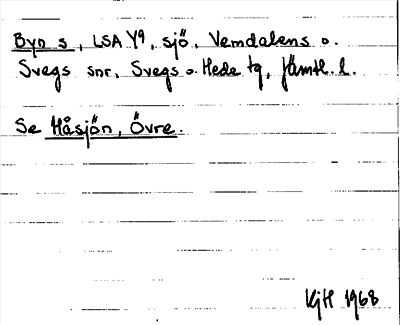 Byn s, LSA Y9, sjö, Vemdalens o.
Svegs snr, Svegs o. Hede tg, Jämtl. l.
Se Håsjön, Övre.
KjH 1968